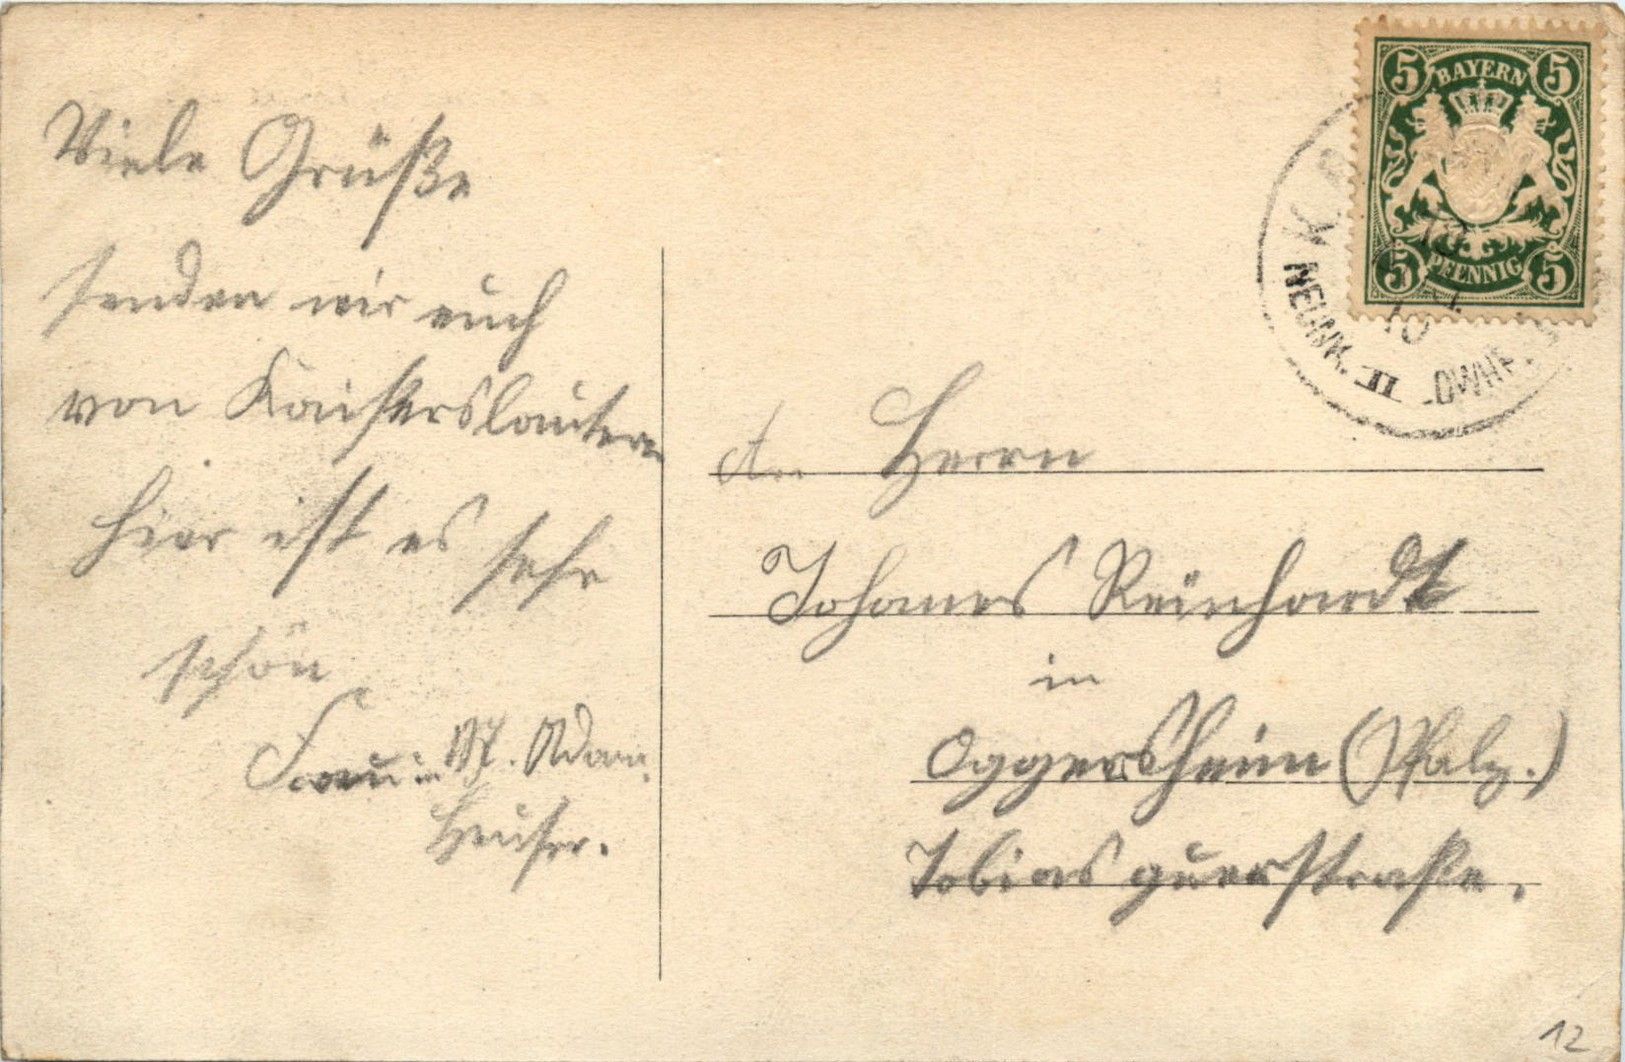 Viele Grüße
senden wir euch
von Kaiserslautern
hier ist es sehr
schön
Adam
Heuser.
BAYERN
5 5
5 PFENNIG 5
10
NEUNK. II
An Herrn
Johannes Reinhardt
in
Oggersheim (Pfalz.)
Tobias querstraße.
12